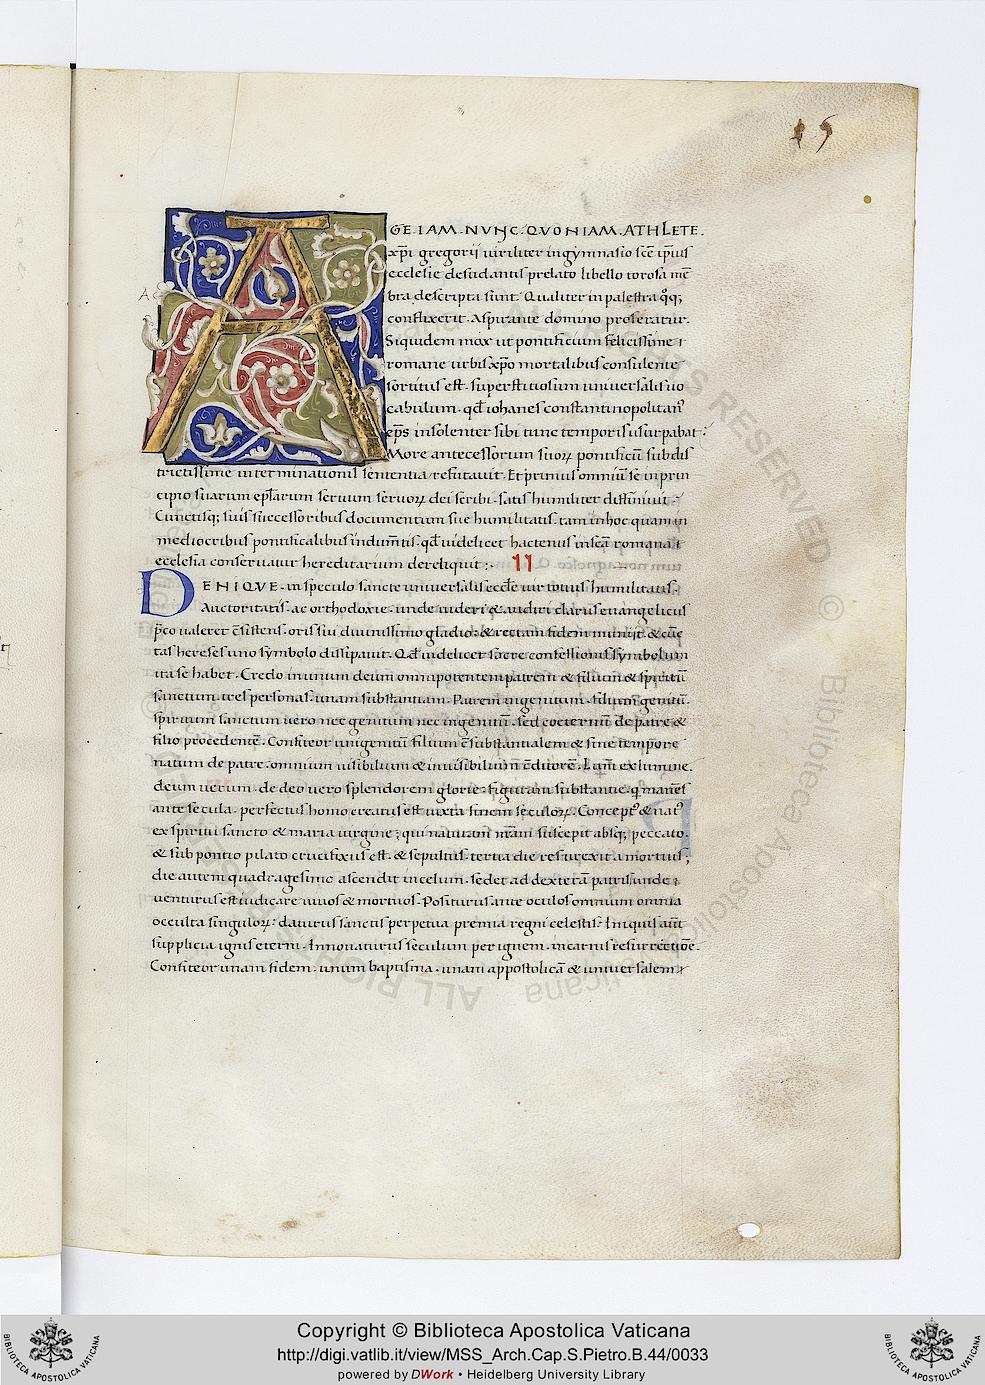 15
A
AGE . IAM . NVNC . QVONIAM . ATHLETE .
xp̄i gregorii uiriliter in gymnasio scē ipsius
ecclesie desudantis prelato libello torosa mē
bra descripta sunt . Qualiter in palestra qͦq;
conflixerit . Aspirante domino proferatur .
Siquidem mox ut pontificium felicissime
romane urbis xp̄o mortalibus consulente
sortitus est . superstitiosum uniuersalis uo
cabulum . qđ iohanes constantinopolitanꝰ
ep̄s insolenter sibi tunc temporis usurpabat .
More antecessorum suoꝝ pontificum subdis
trictissime interminationis sententia refutauit . Et primus omniū se in prin
cipio suarum epl̄arum seruum seruoꝝ dei scribi . satis humiliter diffiniuit .
Cunctisq; suis successoribus documentum sue humilitatis . tam in hoc quam in
mediocribus pontificalibus indumtīs . qđ uidelicet hactenus in scā romana
ecclesia conseruatur hereditarium dereliquit : . II
DENIQVE . in speculo sancte uniuersalis eccl̄e uir totius humilitatis .
Auctoritatis . ac orthodoxie . unde uideri & audiri clarus euangelicus
p̄co ualeret c̄sistens . oris sui diuinissimo gladio . & rectam fidem
tas hereses uno symbolo dissipauit . Qđ uidelicet sacre confessionis symbolum
ita se habet . Credo in unum deum omnipotentem patrem & filium & spiritū
sanctum . tres personas . unam substantiam . Patrem ingenitum . filium genitū .
spiritum sanctum uero nec genitum nec ingenitū . sed coeternū de patre &
filio procedentē . Confiteor unigenitū filium c̄substantialem & sine tempore
natum de patre . omnium uisibilium & inuisibilium c̄ditorē . Lum̄ ex lumine .
deum uerum . de deo uero splendorem glorie . figuram substantie . q manēs
ante secula . perfectus homo creatus est iuxta finem seculoꝝ . Conceptꝰ & natꝰ
ex spiritu sancto & maria uirgine ; qui naturam nr̄am suscepit absq; peccato .
& sub pontio pilato crucifixus est . & sepultus . tertia die resurexit a mortuis ;
die autem quadragesimo ascendit in celum . sedet ad dexterā patris unde
uenturus est iudicare uiuos & mortuos . Positurus ante oculos omnium omnia
occulta singuloꝝ : daturus sanctis perpetua premia regni celestis . Iniquis aūt
supplicia ignis eterni . Innouaturus seculum per ignem . in carnis resurrectiōe .
Confiteor unam fidem . unum baptisma . unam appostolicā & uniuersalem
Copyright © Biblioteca Apostolica Vaticana
http://digi.vatlib.it/view/MSS_Arch.Cap.S.Pietro.B.44/0033
powered by DWork • Heidelberg University Library